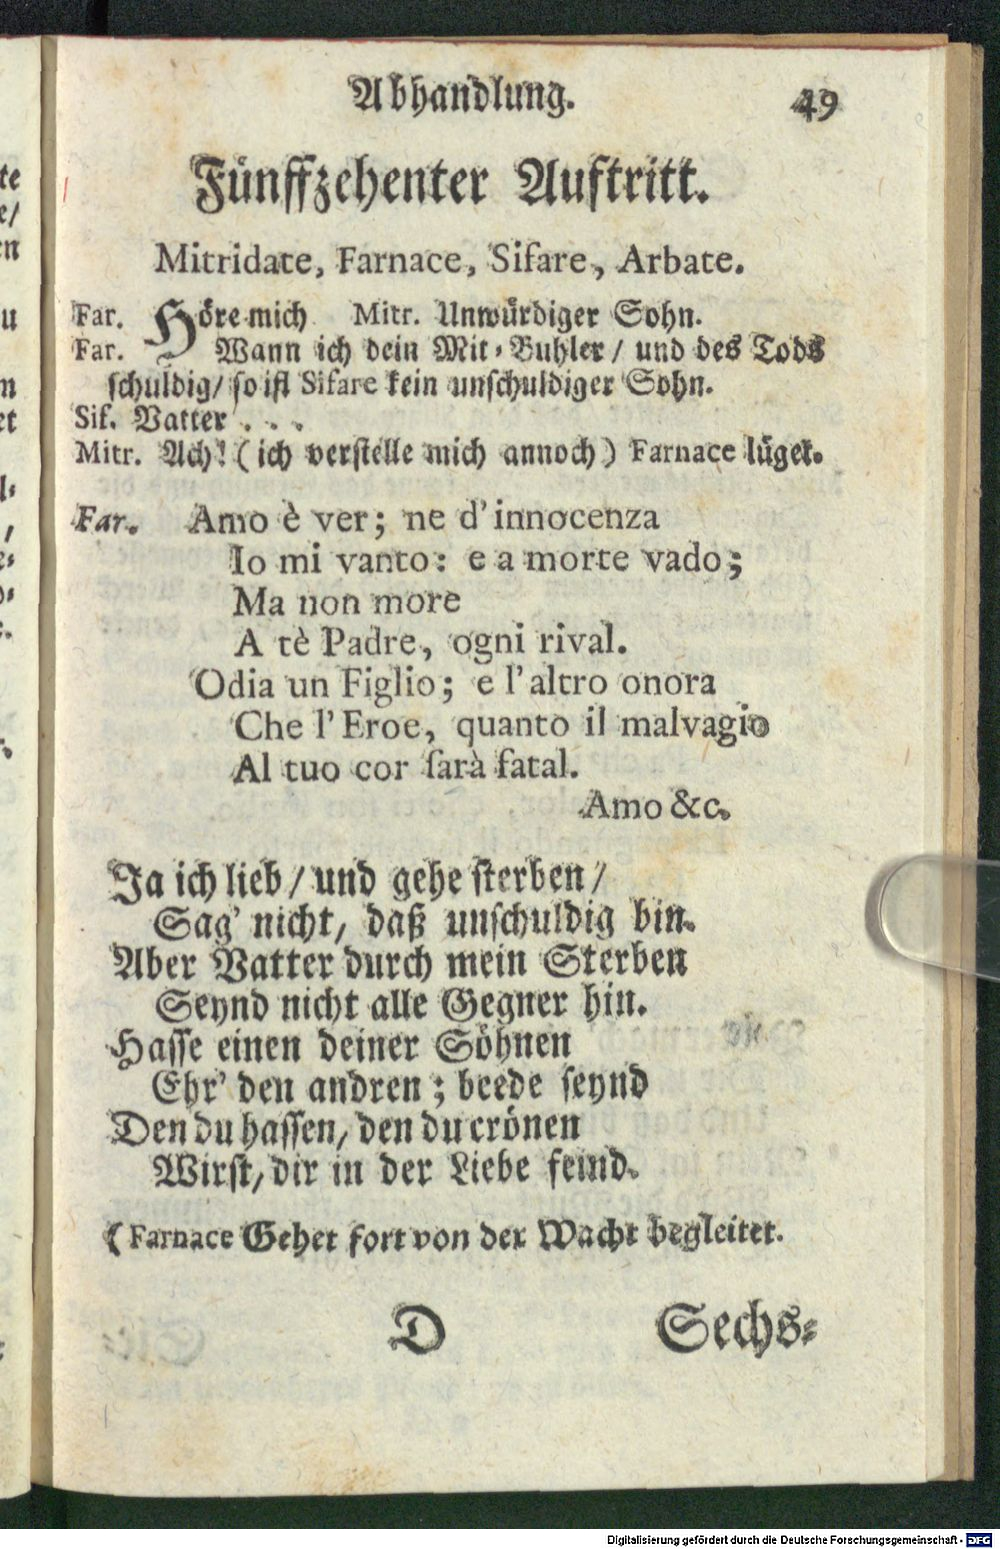 Abhandlung. 49
Fünffzehenter Auftritt.
Mitridate, Farnace, Sifare, Arbate.
Far. Höre mich Mitr. Unwürdiger Sohn.
Far. Wann ich dein Mit-Buhler / und des Tods
schuldig / so ist Sifare kein unschuldiger Sohn.
Sif. Vatter . . .
Mitr. Ach! ( ich verstelle mich annoch ) Farnace lüget.
Far. Amo è ver; ne d'innocenza
Io mi vanto: e a morte vado;
Ma non more
A tè Padre, ogni rival.
Odia un Figlio; e l'altro onora
Che l'Eroe, quanto il malvagio
Al tuo cor sarà fatal.
Amo &c.
Ja ich lieb / und gehe sterben /
Sag' nicht, daß unschuldig bin.
Aber Vatter durch mein Sterben
Seynd nicht alle Gegner hin.
Hasse einen deiner Söhnen
Ehr' den andren; beede seynd
Den du hassen, den du crönen
Wirst, dir in der Liebe feind.
(Farnace Gehet fort von der Wacht begleitet.
D Sechs-
Digitalisierung gefördert durch die Deutsche Forschungsgemeinschaft - DFG